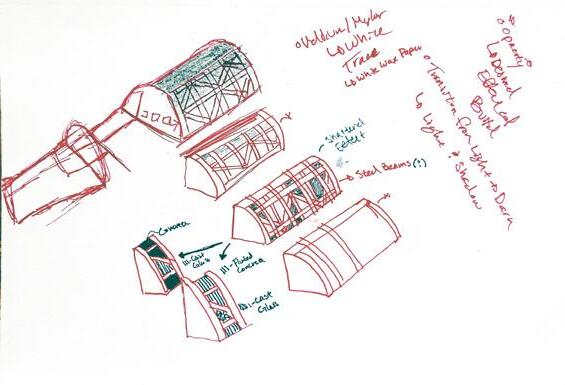 Vellum/Mylar
White
Trace
White Wax Paper
Opacity
Desired
Effect
Transition from Light to Dark
Light & Shadow
Shattered
Effect
Steel Beams (?)
Covered
Cast
Fluted
Covered
Cast
Glass